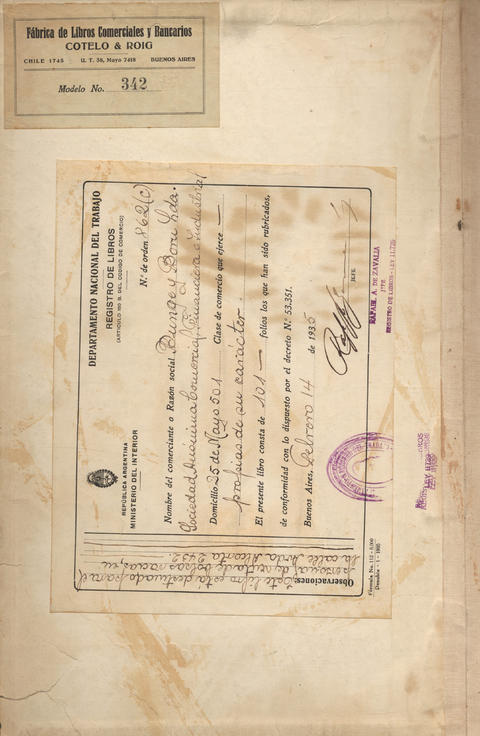 Fábrica de Libros Comerciales y Bancarios
COTELO & ROIG
CHILE 1745 U. T. 38, Mayo 7418 BUENOS AIRES
Modelo No. 342
REPÚBLICA ARGENTINA
MINISTERIO DEL INTERIOR
DEPARTAMENTO NACIONAL DEL TRABAJO
REGISTRO DE LIBROS
N.º de orden 862 (C)
Nombre del comerciante o Razón social Bunge y Born Ltda.
Sociedad Anónima Comercial, Financiera e Industrial
Domicilio 25 de Mayo 501 Clase de comercio que ejerce —
propias de su carácter.
El presente libro consta de 101 — folios los que han sido rubricados,
de conformidad con lo dispuesto por el decreto N.º 53.351.
Buenos Aires, Febrero 14 de 1935
JEFE.
RAFAEL A. DE ZAVALIA
JEFE
REGISTRO DE LIBROS - LEY 11.729
Observaciones: Este libro está destinado para el
personal de venta de bolsas vacías, en
la calle Alicante 2442.